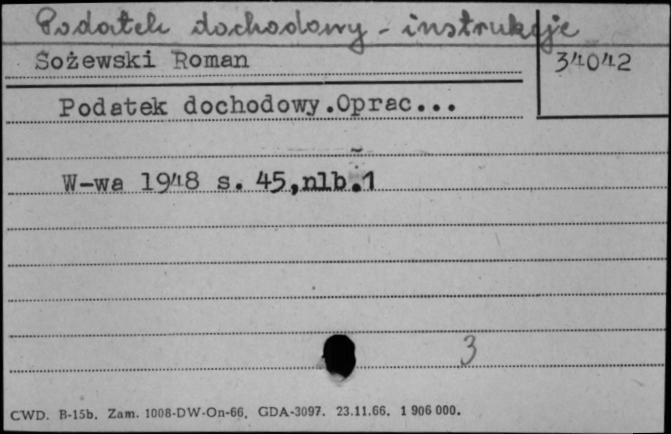 Podatek dochodowy - instrukcje
Sożewski Roman
34042
Podatek dochodowy.Oprac...
W-wa 1948 s. 45,nlb.1
3
CWD. B-15b. Zam. 1008-DW-On-66. GDA-3097. 23.11.66. 1 906 000.